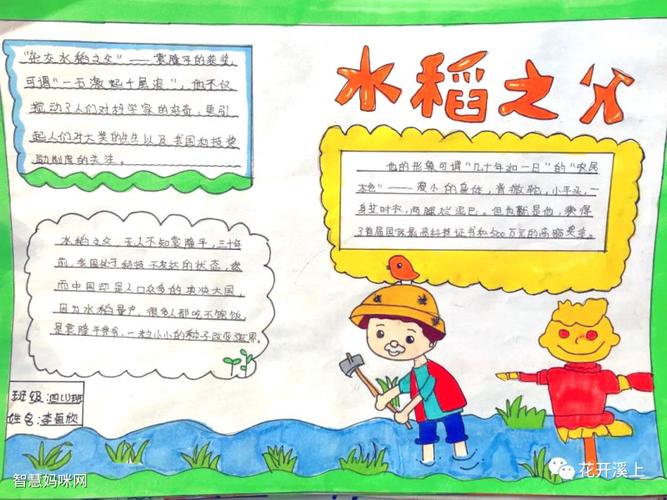 水稻之父
"杂交水稻之父"——袁隆平的获奖,
可谓"一石激起千层浪",他不仅
搅动了人们对科学家的好奇,更引
起人们对大奖的产生以及我国科技奖
励制度的关注。
他的形象可谓"几十年如一日"的"农民
本色"——瘦小的身体,背微驼,小平头,一
身出时衣,两腿沾泥巴。但也就是他,获得
了首届国家最高科技证书和500万元的高额奖金。
水稻之父,无人不知袁隆平,三十年
前,我国处于科技不发达的状态,然
而中国却是人口众多的泱泱大国,
因为水稻量产,很多人都吃不饱饭,
是袁隆平爷爷,一粒小小的种子改变世界。
班级:四(1)班
姓名:李恒欣
智慧妈咪网
花开溪上